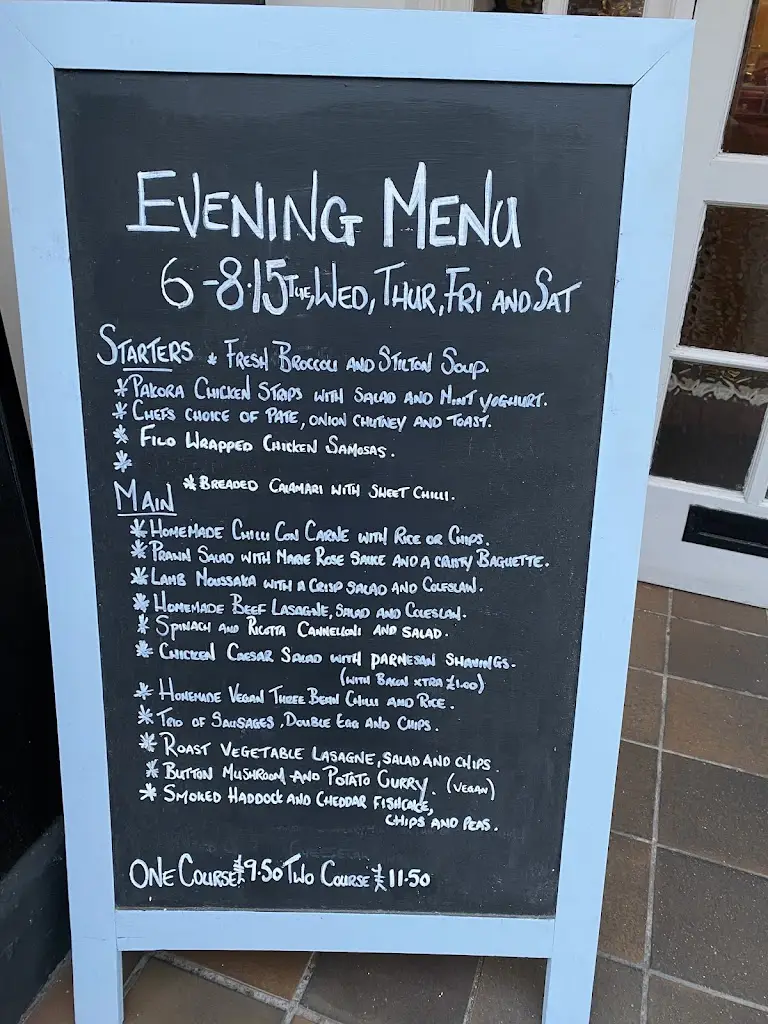 EVENING MENU
6-8.15 TUE, WED, THUR, FRI AND SAT
STARTERS * FRESH BROCCOLI AND STILTON SOUP.
* PAKORA CHICKEN STRIPS WITH SALAD AND MINT YOGHURT.
* CHEFS CHOICE OF PATE, ONION CHUTNEY AND TOAST.
* FILO WRAPPED CHICKEN SAMOSAS.
*
* BREADED CALAMARI WITH SWEET CHILLI.
MAIN
* HOMEMADE CHILLI CON CARNE WITH RICE OR CHIPS.
* PRAWN SALAD WITH MARIE ROSE SAUCE AND A CRUSTY BAGUETTE.
* LAMB MOUSSAKA WITH A CRISP SALAD AND COLESLAW.
* HOMEMADE BEEF LASAGNE, SALAD AND COLESLAW.
* SPINACH AND RICOTTA CANNELLONI AND SALAD.
* CHICKEN CAESAR SALAD WITH PARMESAN SHAVINGS.
(WITH BACON XTRA £1.00)
* HOMEMADE VEGAN THREE BEAN CHILLI AND RICE.
* TRIO OF SAUSAGES, DOUBLE EGG AND CHIPS.
* ROAST VEGETABLE LASAGNE, SALAD AND CHIPS.
* BUTTON MUSHROOM AND POTATO CURRY. (VEGAN)
* SMOKED HADDOCK AND CHEDDAR FISHCAKE,
CHIPS AND PEAS.
ONE COURSE £9.50 TWO COURSE £11.50